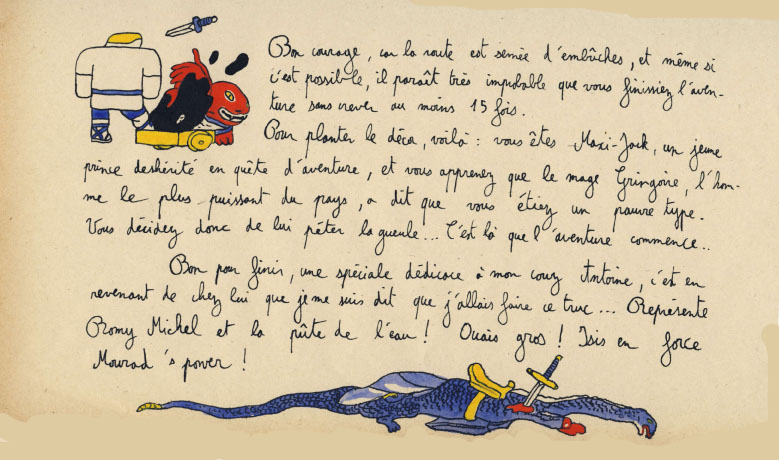 Bon courage, car la route est semée d'embûches, et même si
c'est possible, il paraît très improbable que vous finissiez l'aven-
ture sans crever au moins 15 fois.
Pour planter le décor, voilà : vous êtes Maxi-Jack, un jeune
prince deshérité en quête d'aventure, et vous apprenez que le mage Gringoire, l'hom-
me le plus puissant du pays, a dit que vous étiez un pauvre type.
Vous décidez donc de lui péter la gueule... C'est là que l'aventure commence..
Bon pour finir, une spéciale dédicace à mon couz Antoine, c'est en
revenant de chez lui que je me suis dit que j'allais faire ce truc... Représente
Romy Michel et la pûte de l'eau ! Ouais gros ! Isis en force
Mourad's power !